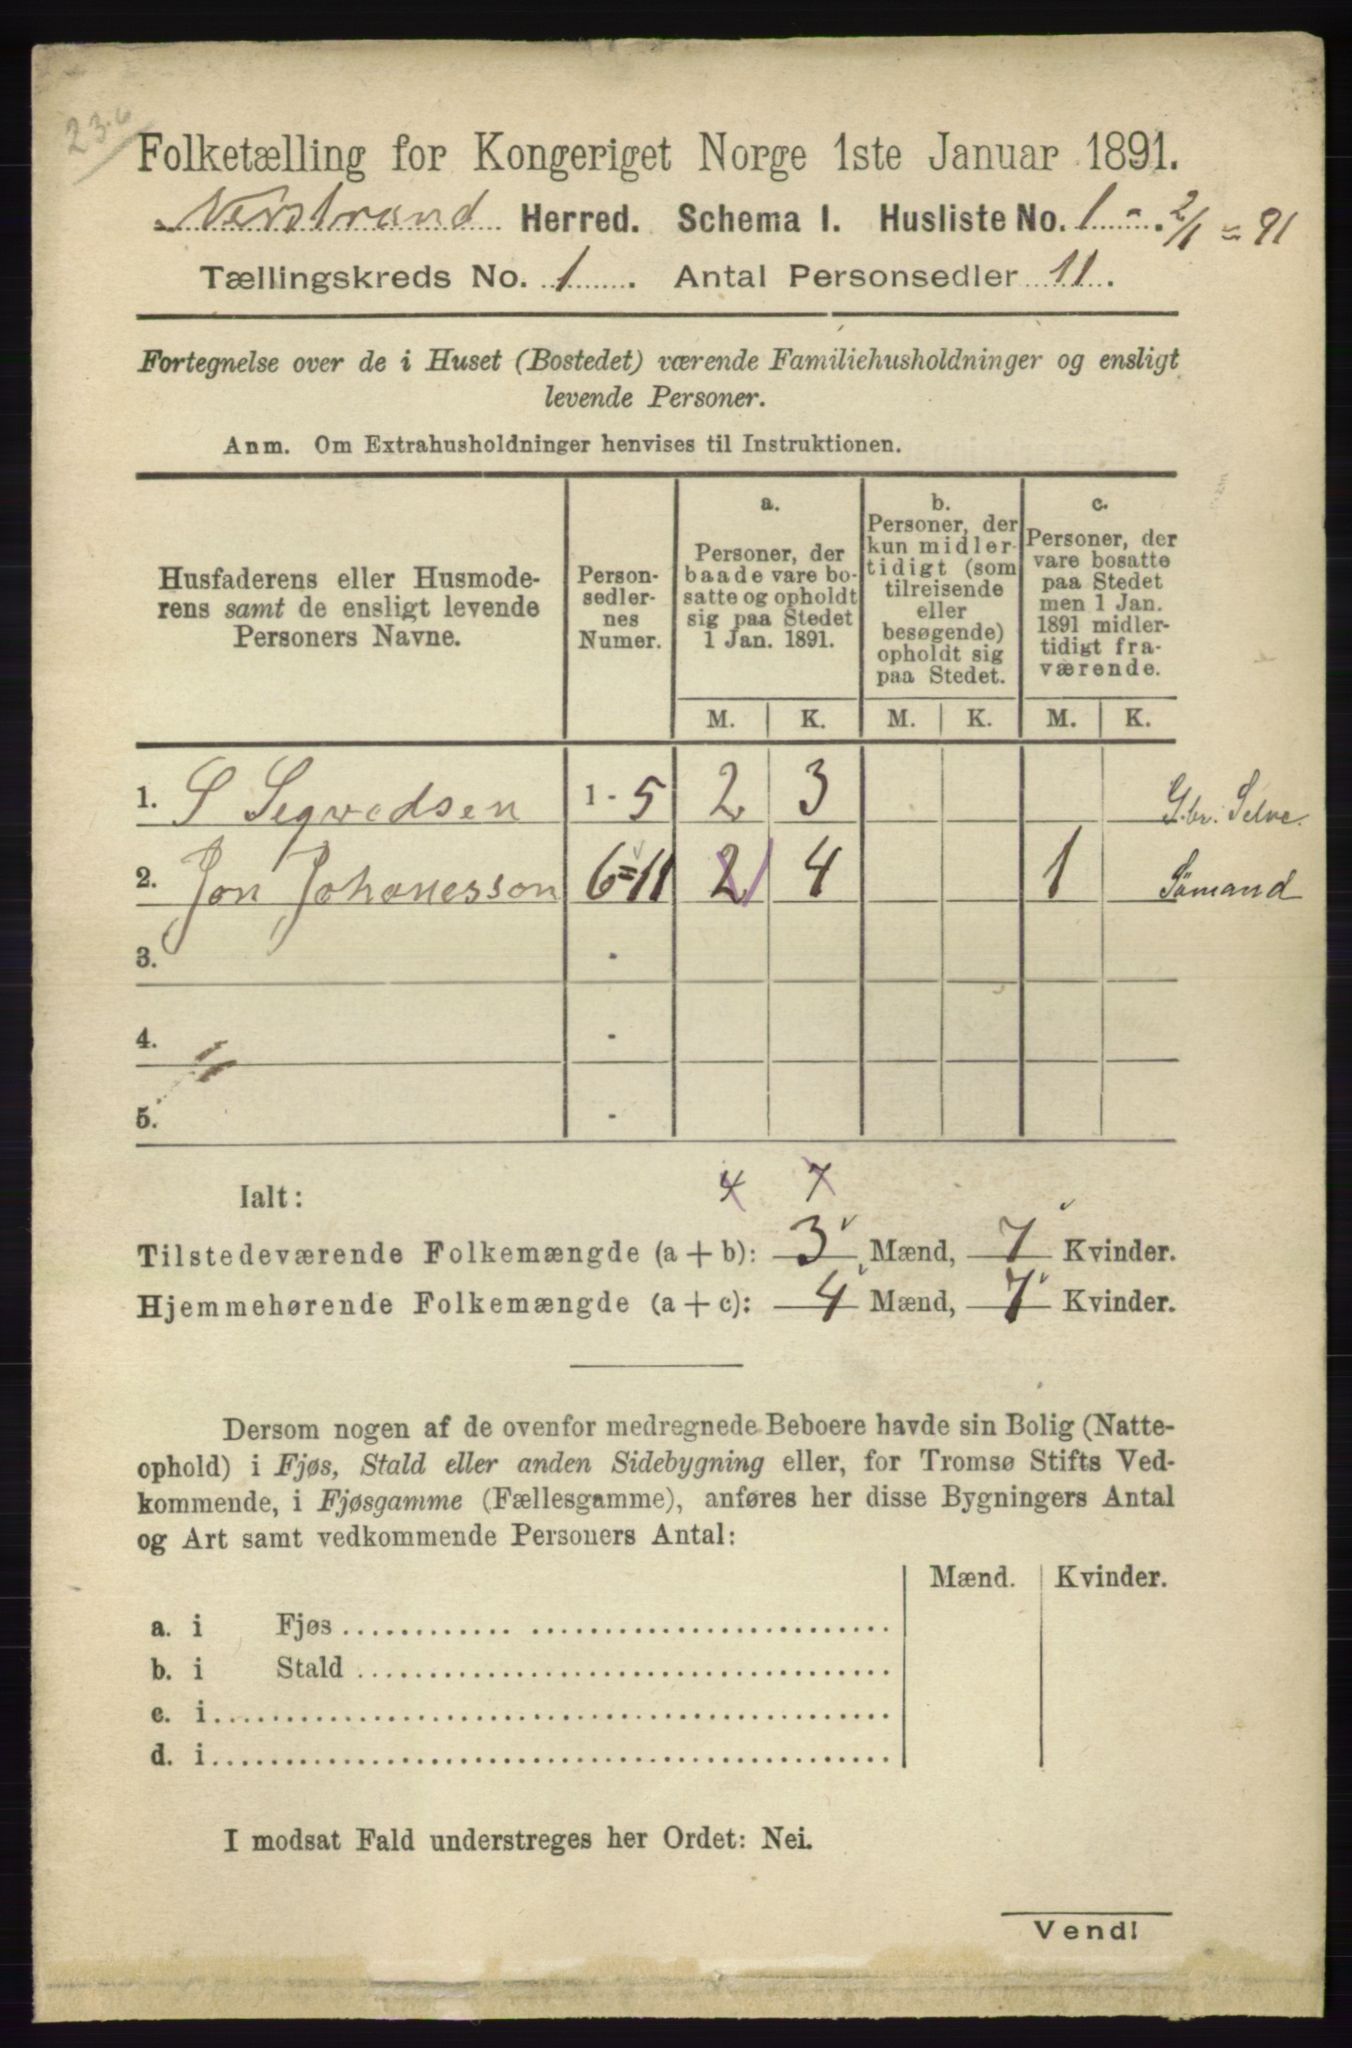 23.6
Folketælling for Kongeriget Norge 1ste Januar 1891.
Nerstrand Herred. Schema I. Husliste No. 1 - 2/1 = 91
Tællingskreds No. 1. Antal Personsedler 11.
Fortegnelse over de i Huset (Bostedet) værende Familiehusholdninger og ensligt
levende Personer.
Anm. Om Extrahusholdninger henvises til Instruktionen.
Husfaderens eller Husmode-
rens samt de ensligt levende
Personers Navne.
Person-
sedler-
nes
Numer.
a.
Personer, der
baade vare bo-
satte og opholdt
sig paa Stedet
1 Jan. 1891.
b.
Personer, der
kun midler-
tidigt (som
tilreisende
eller
besøgende)
opholdt sig
paa Stedet.
c.
Personer, der
vare bosatte
paa Stedet
men 1 Jan.
1891 midler-
tidigt fra-
værende.
M. K. M. K. M. K.
1. S Segvedsen 1 - 5 2 3 G.br. Selve.
2. Jon Johanesson 6=11 2 1 4 1 Sömand
3. -
4. -
5. -
Ialt: 4 7
Tilstedeværende Folkemængde (a + b): 3 Mænd, 7 Kvinder.
Hjemmehørende Folkemængde (a + c): 4 Mænd, 7 Kvinder.
Dersom nogen af de ovenfor medregnede Beboere havde sin Bolig (Natte-
ophold) i Fjøs, Stald eller anden Sidebygning eller, for Tromsø Stifts Ved-
kommende, i Fjøsgamme (Fællesgamme), anføres her disse Bygningers Antal
og Art samt vedkommende Personers Antal:
Mænd. Kvinder.
a. i Fjøs
b. i Stald
c. i
d. i
I modsat Fald understreges her Ordet: Nei.
Vend!